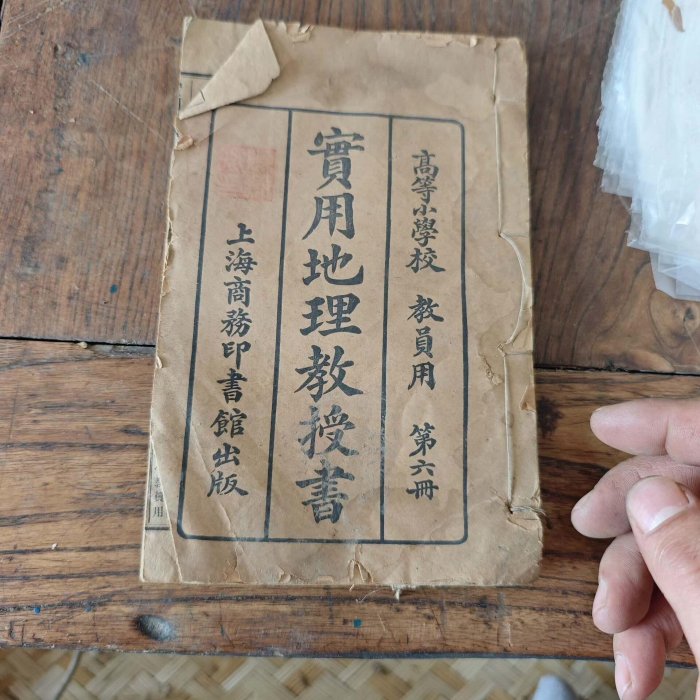 高等小學校 教員用 第六冊
實用地理教授書
上海商務印書館出版